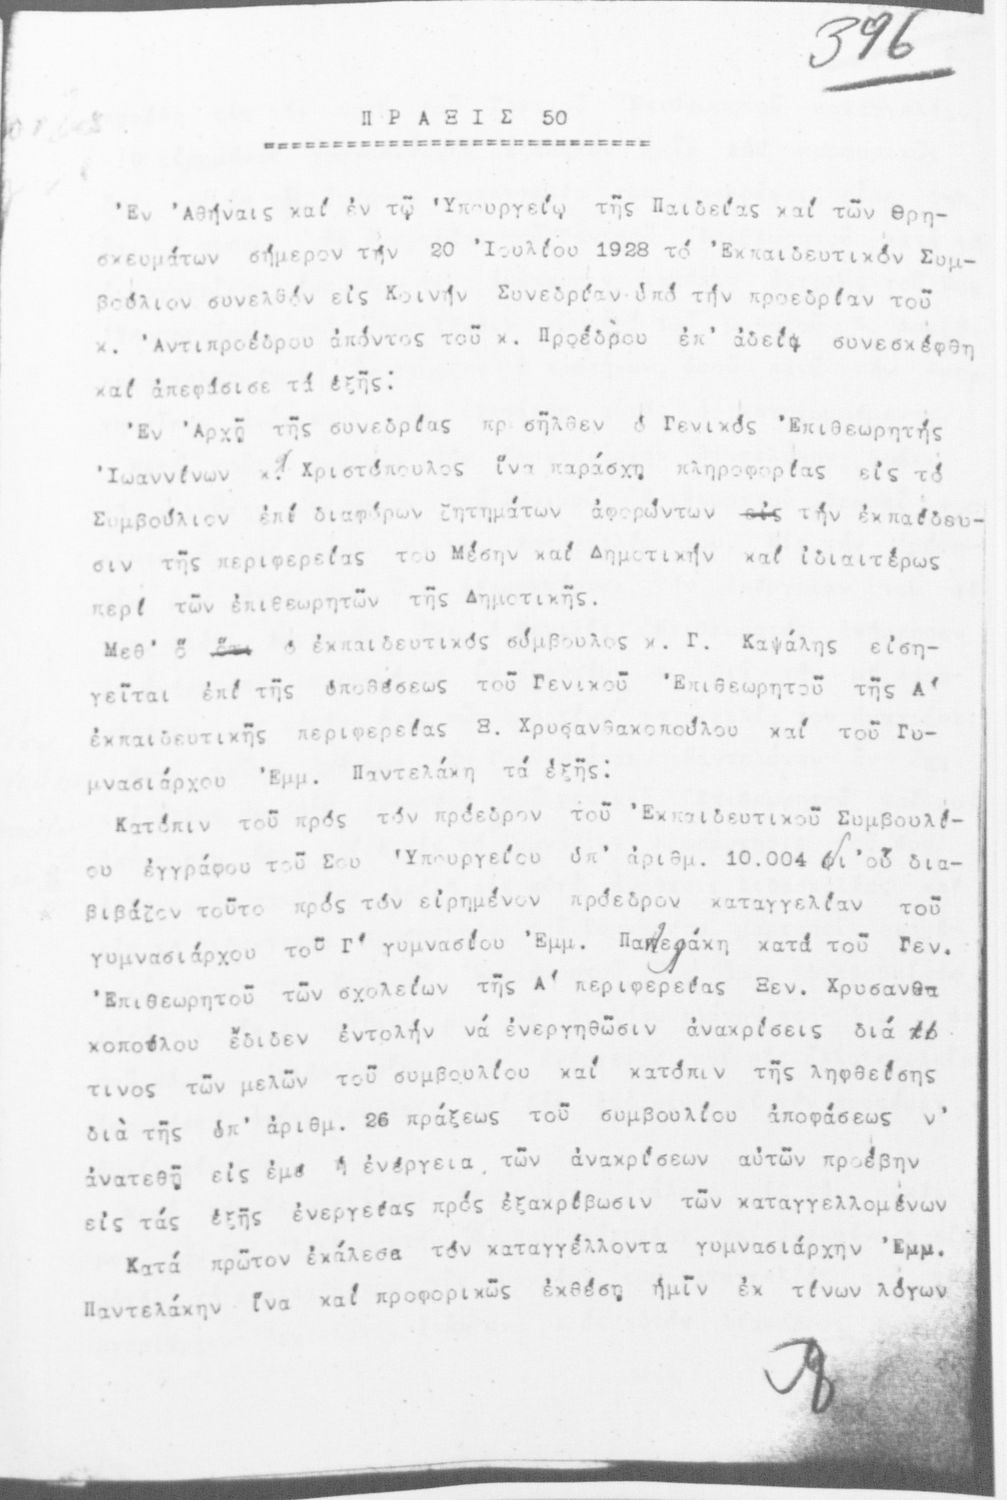 396
ΠΡΑΞΙΣ 50
Ἐν Ἀθήναις καί ἐν τῷ Ὑπουργείῳ τῆς Παιδείας καί τῶν Θρη-
σκευμάτων σήμερον τήν 20 Ἰουλίου 1928 τό Ἐκπαιδευτικόν Συμ-
βούλιον συνελθόν εἰς Κοινήν Συνεδρίαν ὑπό τήν προεδρίαν τοῦ
κ. Ἀντιπροέδρου ἀπόντος τοῦ κ. Προέδρου ἐπ' ἀδείᾳ συνεσκέφθη
καί ἀπεφάσισε τά ἑξῆς:
Ἐν Ἀρχῇ τῆς συνεδρίας προσῆλθεν ὁ Γενικός Ἐπιθεωρητής
Ἰωαννίνων κ. Χριστόπουλος ἵνα παράσχῃ πληροφορίας εἰς τό
Συμβούλιον ἐπί διαφόρων ζητημάτων ἀφορώντων εἰς τήν ἐκπαίδευ-
σιν τῆς περιφερείας του Μέσην καί Δημοτικήν καί ἰδιαιτέρως
περί τῶν ἐπιθεωρητῶν τῆς Δημοτικῆς.
Μεθ' ὅ ὁ ἐκπαιδευτικός σύμβουλος κ. Γ. Καψάλης εἰση-
γεῖται ἐπί τῆς ὑποθέσεως τοῦ Γενικοῦ Ἐπιθεωρητοῦ τῆς Α'
ἐκπαιδευτικῆς περιφερείας Ξ. Χρυσανθακοπούλου καί τοῦ Γυ-
μνασιάρχου Ἐμμ. Παντελάκη τά ἑξῆς:
Κατόπιν τοῦ πρός τόν πρόεδρον τοῦ Ἐκπαιδευτικοῦ Συμβουλί-
ου ἐγγράφου τοῦ Σου Ὑπουργείου ὑπ' ἀριθμ. 10.004 δι'οὗ δια-
βιβάζον τοῦτο πρός τόν εἰρημένον πρόεδρον καταγγελίαν τοῦ
γυμνασιάρχου τοῦ Γ' γυμνασίου Ἐμμ. Παντελάκη κατά τοῦ Γεν.
Ἐπιθεωρητοῦ τῶν σχολείων τῆς Α' περιφερείας Ξεν. Χρυσανθα
κοπούλου ἔδιδεν ἐντολήν νά ἐνεργηθῶσιν ἀνακρίσεις διά
τινος τῶν μελῶν τοῦ συμβουλίου καί κατόπιν τῆς ληφθείσης
διὰ τῆς ὑπ' ἀριθμ. 26 πράξεως τοῦ συμβουλίου ἀποφάσεως ν'
ἀνατεθῇ εἰς ἐμέ ἡ ἐνέργεια τῶν ἀνακρίσεων αὐτῶν προέβην
εἰς τάς ἑξῆς ἐνεργείας πρός ἐξακρίβωσιν τῶν καταγγελλομένων
Κατά πρῶτον ἐκάλεσα τόν καταγγέλλοντα γυμνασιάρχην Ἐμμ.
Παντελάκην ἵνα καί προφορικῶς ἐκθέσῃ ἡμῖν ἐκ τίνων λόγων